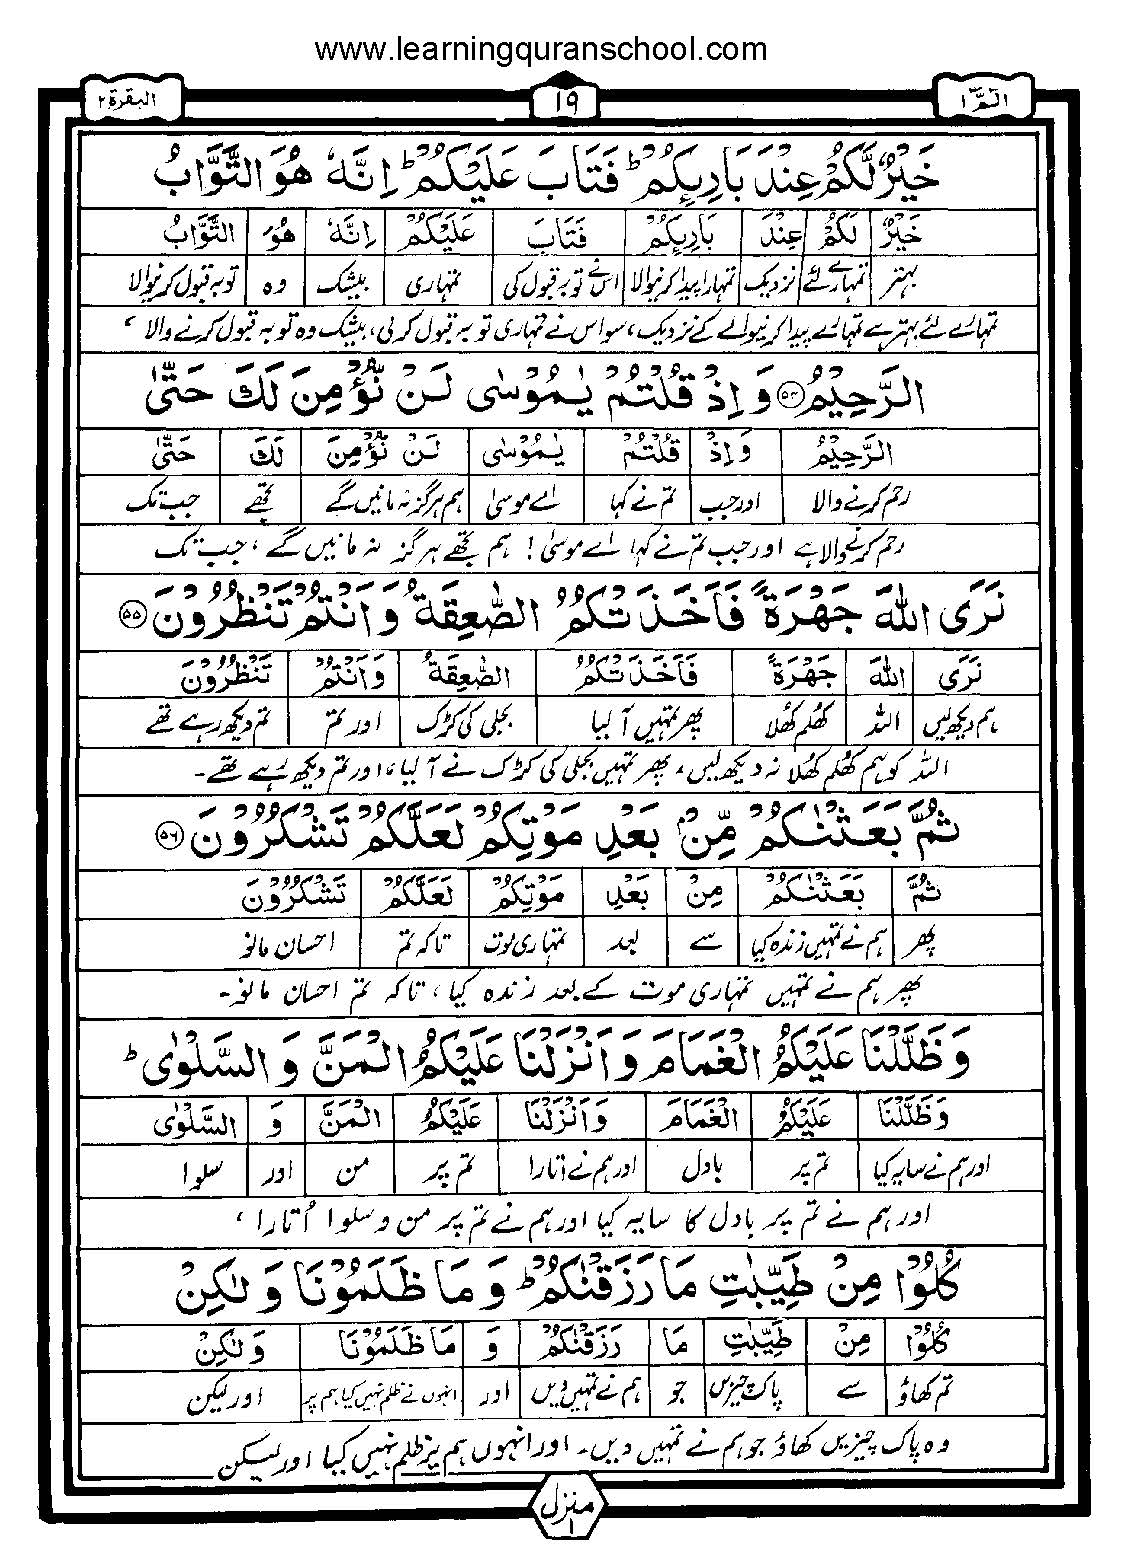 www.learningquranschool.com
البقرة ٢ ١٩ الٓمّٓ ١
خَيْرٌ لَّكُمْ عِنْدَ بَارِئِكُمْ ؕ فَتَابَ عَلَيْكُمْ ؕ اِنَّهٗ هُوَ التَّوَّابُ
خَيْرٌ لَكُمْ عِنْدَ بَارِئِكُمْ فَتَابَ عَلَيْكُمْ اِنَّهٗ هُوَ التَّوَّابُ
بہتر تمہارے لئے نزدیک تمہارا پیدا کرنیوالا اس نے توبہ قبول کی تمہاری بیشک وہ توبہ قبول کرنیوالا
تمہارے لئے بہتر ہے تمہارے پیدا کرنیوالے کے نزدیک، سو اس نے تمہاری توبہ قبول کر لی، بیشک وہ توبہ قبول کرنے والا،
الرَّحِيْمُ ۝۵۴ وَ اِذْ قُلْتُمْ يٰمُوْسٰى لَنْ نُّؤْمِنَ لَكَ حَتّٰى
الرَّحِيْمُ وَ اِذْ قُلْتُمْ يٰمُوْسٰى لَنْ نُّؤْمِنَ لَكَ حَتّٰى
رحم کرنے والا اور جب تم نے کہا اے موسیٰ ہم ہرگز نہ مانیں گے تجھے جب تک
رحم کرنے والا ہے اور جب تم نے کہا اے موسیٰ! ہم تجھے ہرگز نہ مانیں گے، جب تک
نَرَى اللّٰهَ جَهْرَةً فَاَخَذَتْكُمُ الصّٰعِقَةُ وَ اَنْتُمْ تَنْظُرُوْنَ ۝۵۵
نَرَى اللّٰهَ جَهْرَةً فَاَخَذَتْكُمُ الصّٰعِقَةُ وَ اَنْتُمْ تَنْظُرُوْنَ
ہم دیکھ لیں اللہ کھلم کھلا پھر تمہیں آ لیا بجلی کی کڑک اور تم تم دیکھ رہے تھے
اللہ کو ہم کھلم کھلا نہ دیکھ لیں، پھر تمہیں بجلی کی کڑک نے آ لیا، اور تم دیکھ رہے تھے۔
ثُمَّ بَعَثْنٰكُمْ مِّنْۢ بَعْدِ مَوْتِكُمْ لَعَلَّكُمْ تَشْكُرُوْنَ ۝۵۶
ثُمَّ بَعَثْنٰكُمْ مِنْ بَعْدِ مَوْتِكُمْ لَعَلَّكُمْ تَشْكُرُوْنَ
پھر ہم نے تمہیں زندہ کیا سے بعد تمہاری موت تاکہ تم احسان مانو
پھر ہم نے تمہیں تمہاری موت کے بعد زندہ کیا، تاکہ تم احسان مانو۔
وَ ظَلَّلْنَا عَلَيْكُمُ الْغَمَامَ وَ اَنْزَلْنَا عَلَيْكُمُ الْمَنَّ وَ السَّلْوٰى ؕ
وَ ظَلَّلْنَا عَلَيْكُمُ الْغَمَامَ وَ اَنْزَلْنَا عَلَيْكُمُ الْمَنَّ وَ السَّلْوٰى
اور ہم نے سایہ کیا تم پر بادل اور ہم نے اتارا تم پر من اور سلوا
اور ہم نے تم پر بادل کا سایہ کیا اور ہم نے تم پر من و سلوا اُتارا،
كُلُوْا مِنْ طَيِّبٰتِ مَا رَزَقْنٰكُمْ ؕ وَ مَا ظَلَمُوْنَا وَ لٰكِنْ
كُلُوْا مِنْ طَيِّبٰتِ مَا رَزَقْنٰكُمْ وَ مَا ظَلَمُوْنَا وَ لٰكِنْ
تم کھاؤ سے پاک چیزیں جو ہم نے تمہیں دیں اور انہوں نے ظلم نہیں کیا ہم پر اور لیکن
وہ پاک چیزیں کھاؤ جو ہم نے تمہیں دیں۔ اور انہوں ہم پر ظلم نہیں کیا اور لیکن
منزل ١